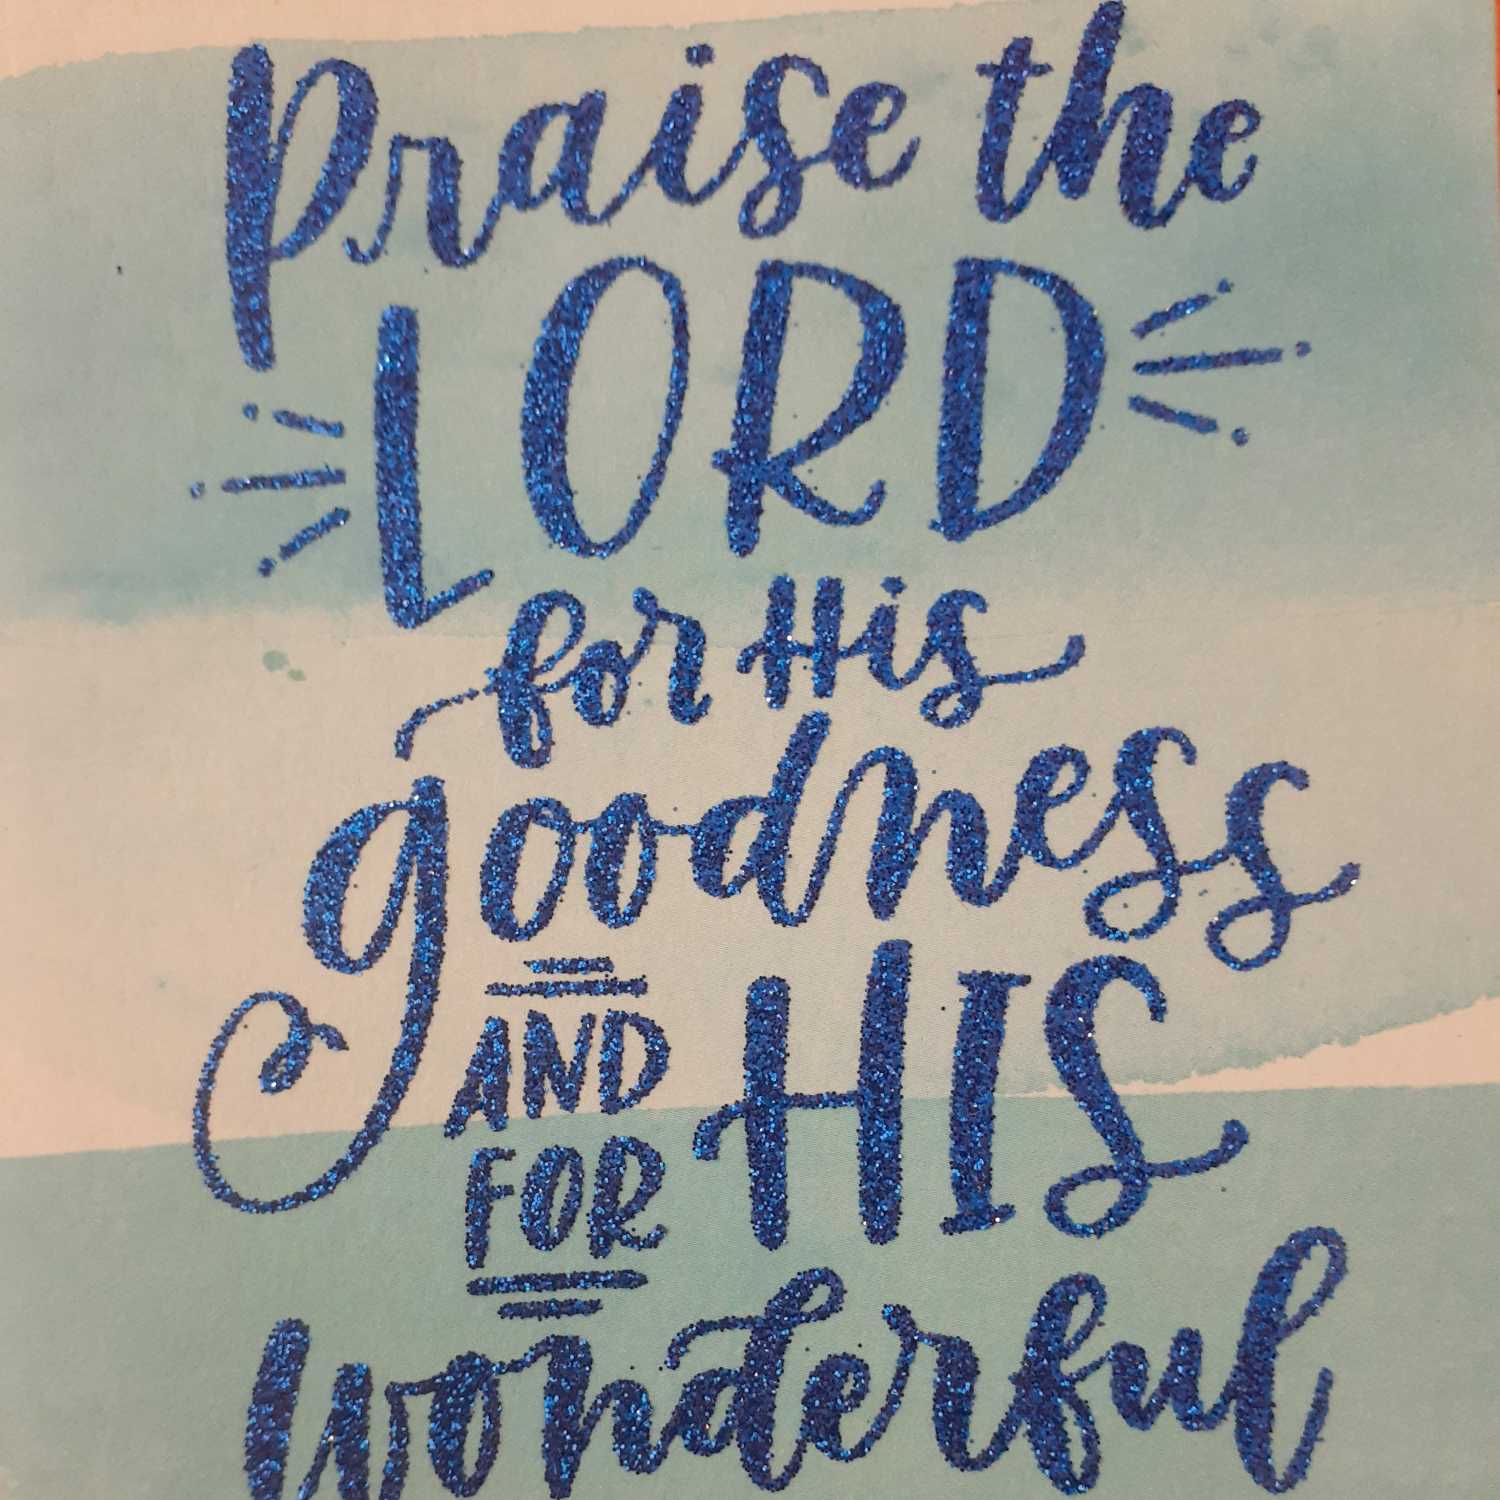 Praise the
LORD
for His
goodness
AND FOR HIS
wonderful